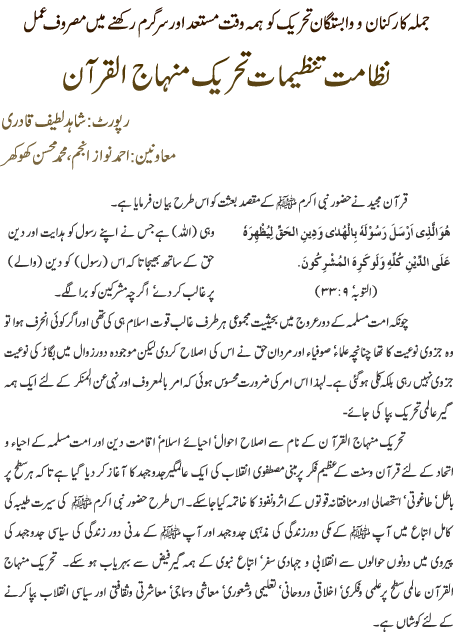 جملہ کارکنان و وابستگان تحریک کو ہمہ وقت مستعد اور سرگرم رکھنے میں مصروف عمل
نظامت تنظیمات تحریک منہاج القرآن
رپورٹ: شاہد لطیف قادری
معاونین: احمد نواز انجم، محمد محسن کھوکھر
قرآن مجید نے حضور نبی اکرم ﷺ کے مقصد بعثت کو اس طرح بیان فرمایا ہے۔
هُوَ الَّذِی اَرْسَلَ رَسُوْلَهٗ بِالْهُدٰی وَدِیْنِ الْحَقِّ لِیُظْهِرَهٗ
عَلَی الدِّیْنِ کُلِّهٖ وَلَوْ کَرِهَ الْمُشْرِکُوْنَ۔
(التوبہ' ۹: ۳۳)
وہی (اللہ) ہے جس نے اپنے رسول کو ہدایت اور دین
حق کے ساتھ بھیجا تاکہ اس (رسول) کو دین (والے)
پر غالب کر دے' اگرچہ مشرکین کو برا لگے۔
چونکہ امت مسلمہ کے دور عروج میں بحیثیت مجموعی ہر طرف غالب قوت اسلام ہی کی تھی اور اگر کوئی انحراف ہوا تو
وہ جزوی نوعیت کا تھا چنانچہ علماء' صوفیاء اور مردان حق نے اس کی اصلاح کر دی لیکن موجودہ دور زوال میں بگاڑ کی نوعیت
جزوی نہیں رہی بلکہ کلی ہو گئی ہے۔ لہذا اس امر کی ضرورت محسوس ہوئی کہ امر بالمعروف اور نہی عن المنکر کے لئے ایک ہمہ
گیر عالمی تحریک بپا کی جائے۔
تحریک منہاج القرآن کے نام سے اصلاح احوال' احیائے اسلام' اقامت دین اور امت مسلمہ کے احیاء و
اتحاد کے لئے قرآن و سنت کے عظیم فکر پر مبنی مصطفوی انقلاب کی ایک عالمگیر جدوجہد کا آغاز کر دیا گیا ہے تاکہ ہر سطح پر
باطل' طاغوتی' استحصالی اور منافقانہ قوتوں کے اثر و نفوذ کا خاتمہ کیا جا سکے۔ اس طرح حضور نبی اکرم ﷺ کی سیرت طیبہ کی
کامل اتباع میں آپ ﷺ کے مکی دور زندگی کی مذہبی جدوجہد اور آپ ﷺ کے مدنی دور زندگی کی سیاسی جدوجہد کی
پیروی میں دونوں حوالوں سے انقلابی و جہادی سفر' اتباع نبوی کے ہمہ گیر فیض سے بہرہ یاب ہو سکے۔ تحریک منہاج
القرآن عالمی سطح پر علمی و فکری' اخلاقی و روحانی' تعلیمی و شعوری' معاشی و سماجی' معاشرتی و ثقافتی اور سیاسی انقلاب بپا کرنے
کے لئے کوشاں ہے۔